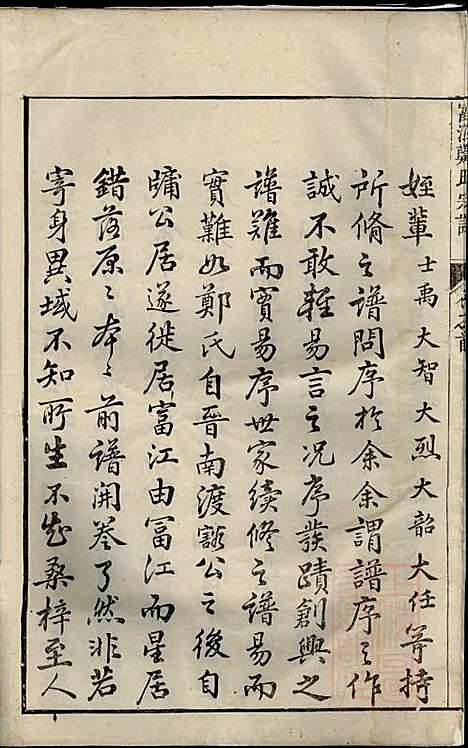 姪輩士禹大智大烈大韶大任等持
所脩之譜問序於余余謂譜序之作
誠不敢輕易言之况序發蹟創興之
譜難而實易序世家續修之譜易而
實難如鄭氏自晉南渡豁公之後自
牗公居遂徙居富江由冨江而星居
錯落原〻本〻前譜開卷了然非若
寄身異域不知所生不知桑梓至人